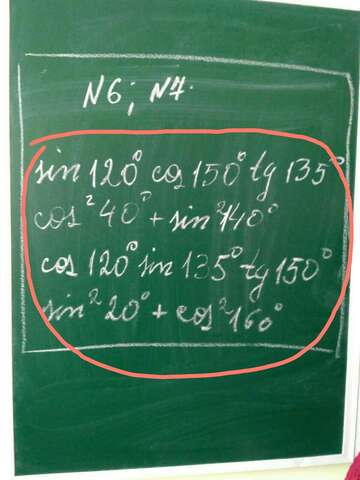 N6; N7.
sin 120° cos 150° tg 135°
cos² 40° + sin² 140°
cos 120° sin 135° tg 150°
sin² 20° + cos² 160°